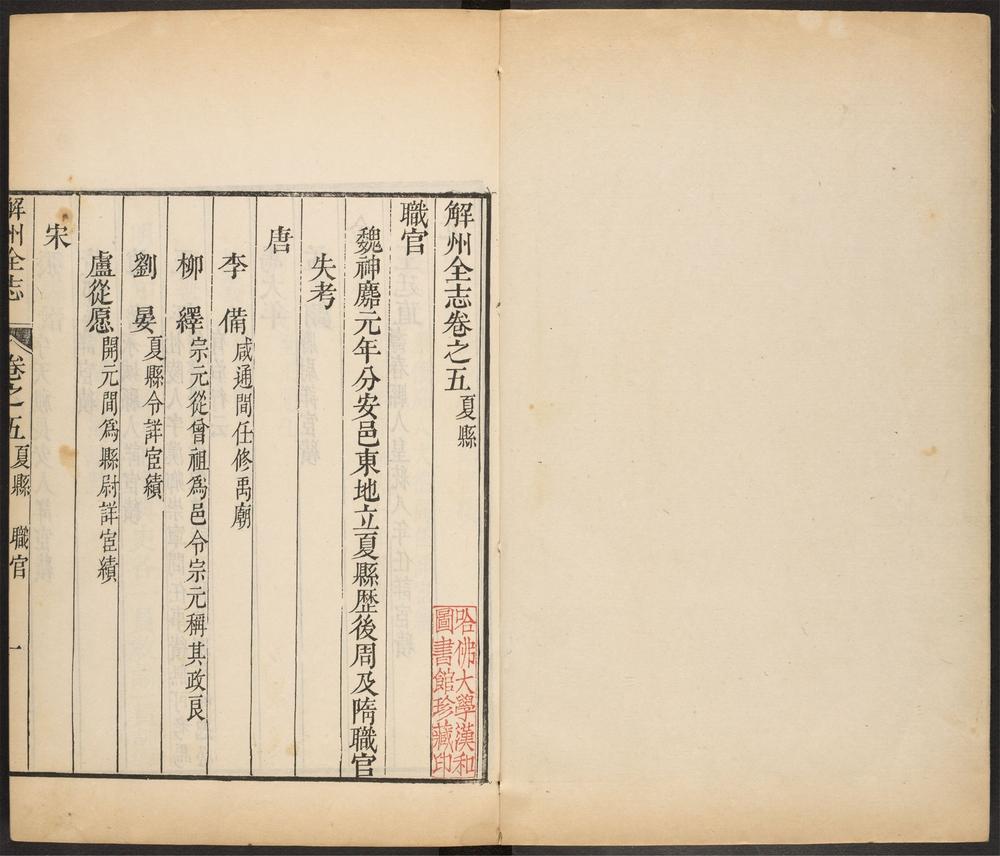 解州全志卷之五 夏縣
哈佛大學漢和
圖書館珍藏印
職官
魏神䴥元年分安邑東地立夏縣歴後周及隋職官
失考
唐
李備 咸通間任修禹廟
柳繹 宗元從曾祖爲邑令宗元稱其政良
劉晏 夏縣令詳宦績
盧從愿 開元間爲縣尉詳宦績
宋
解州全志 卷之五 夏縣 職官 一